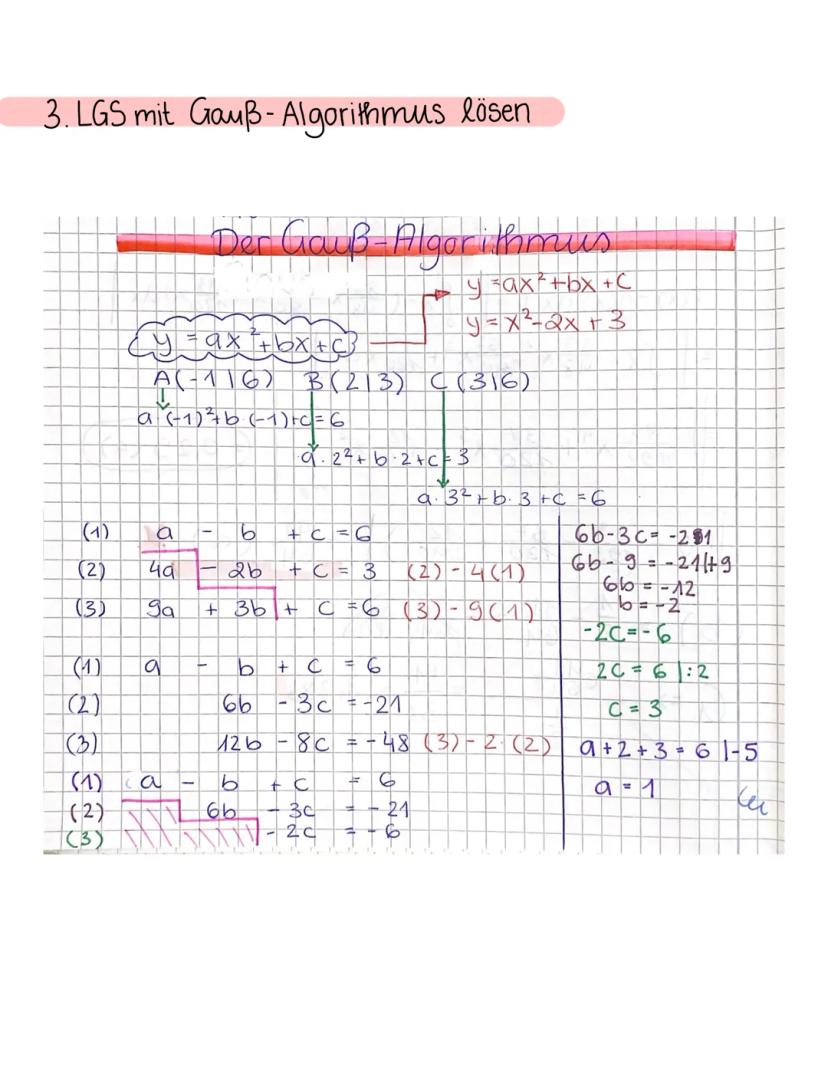 3. LGS mit Gauß-Algorithmus lösen
Der Gauß-Algorithmus
y = ax² + bx + c
y = x² - 2x + 3
y = ax² + bx + c
A(-1|6) B(2|3) C(3|6)
a·(-1)² + b·(-1) + c = 6
a·2² + b·2 + c = 3
a·3² + b·3 + c = 6
(1) a - b + c = 6
(2) 4a - 2b + c = 3 (2) - 4(1)
(3) 9a + 3b + c = 6 (3) - 9(1)
(1) a - b + c = 6
(2) 6b - 3c = -21
(3) 12b - 8c = -48 (3) - 2·(2)
(1) a - b + c = 6
(2) 6b - 3c = -21
(3) -2c = -6
6b - 3c = -21
6b - 9 = -21 |+9
6b = -12
b = -2
-2c = -6
2c = 6 |:2
c = 3
a + 2 + 3 = 6 |-5
a = 1